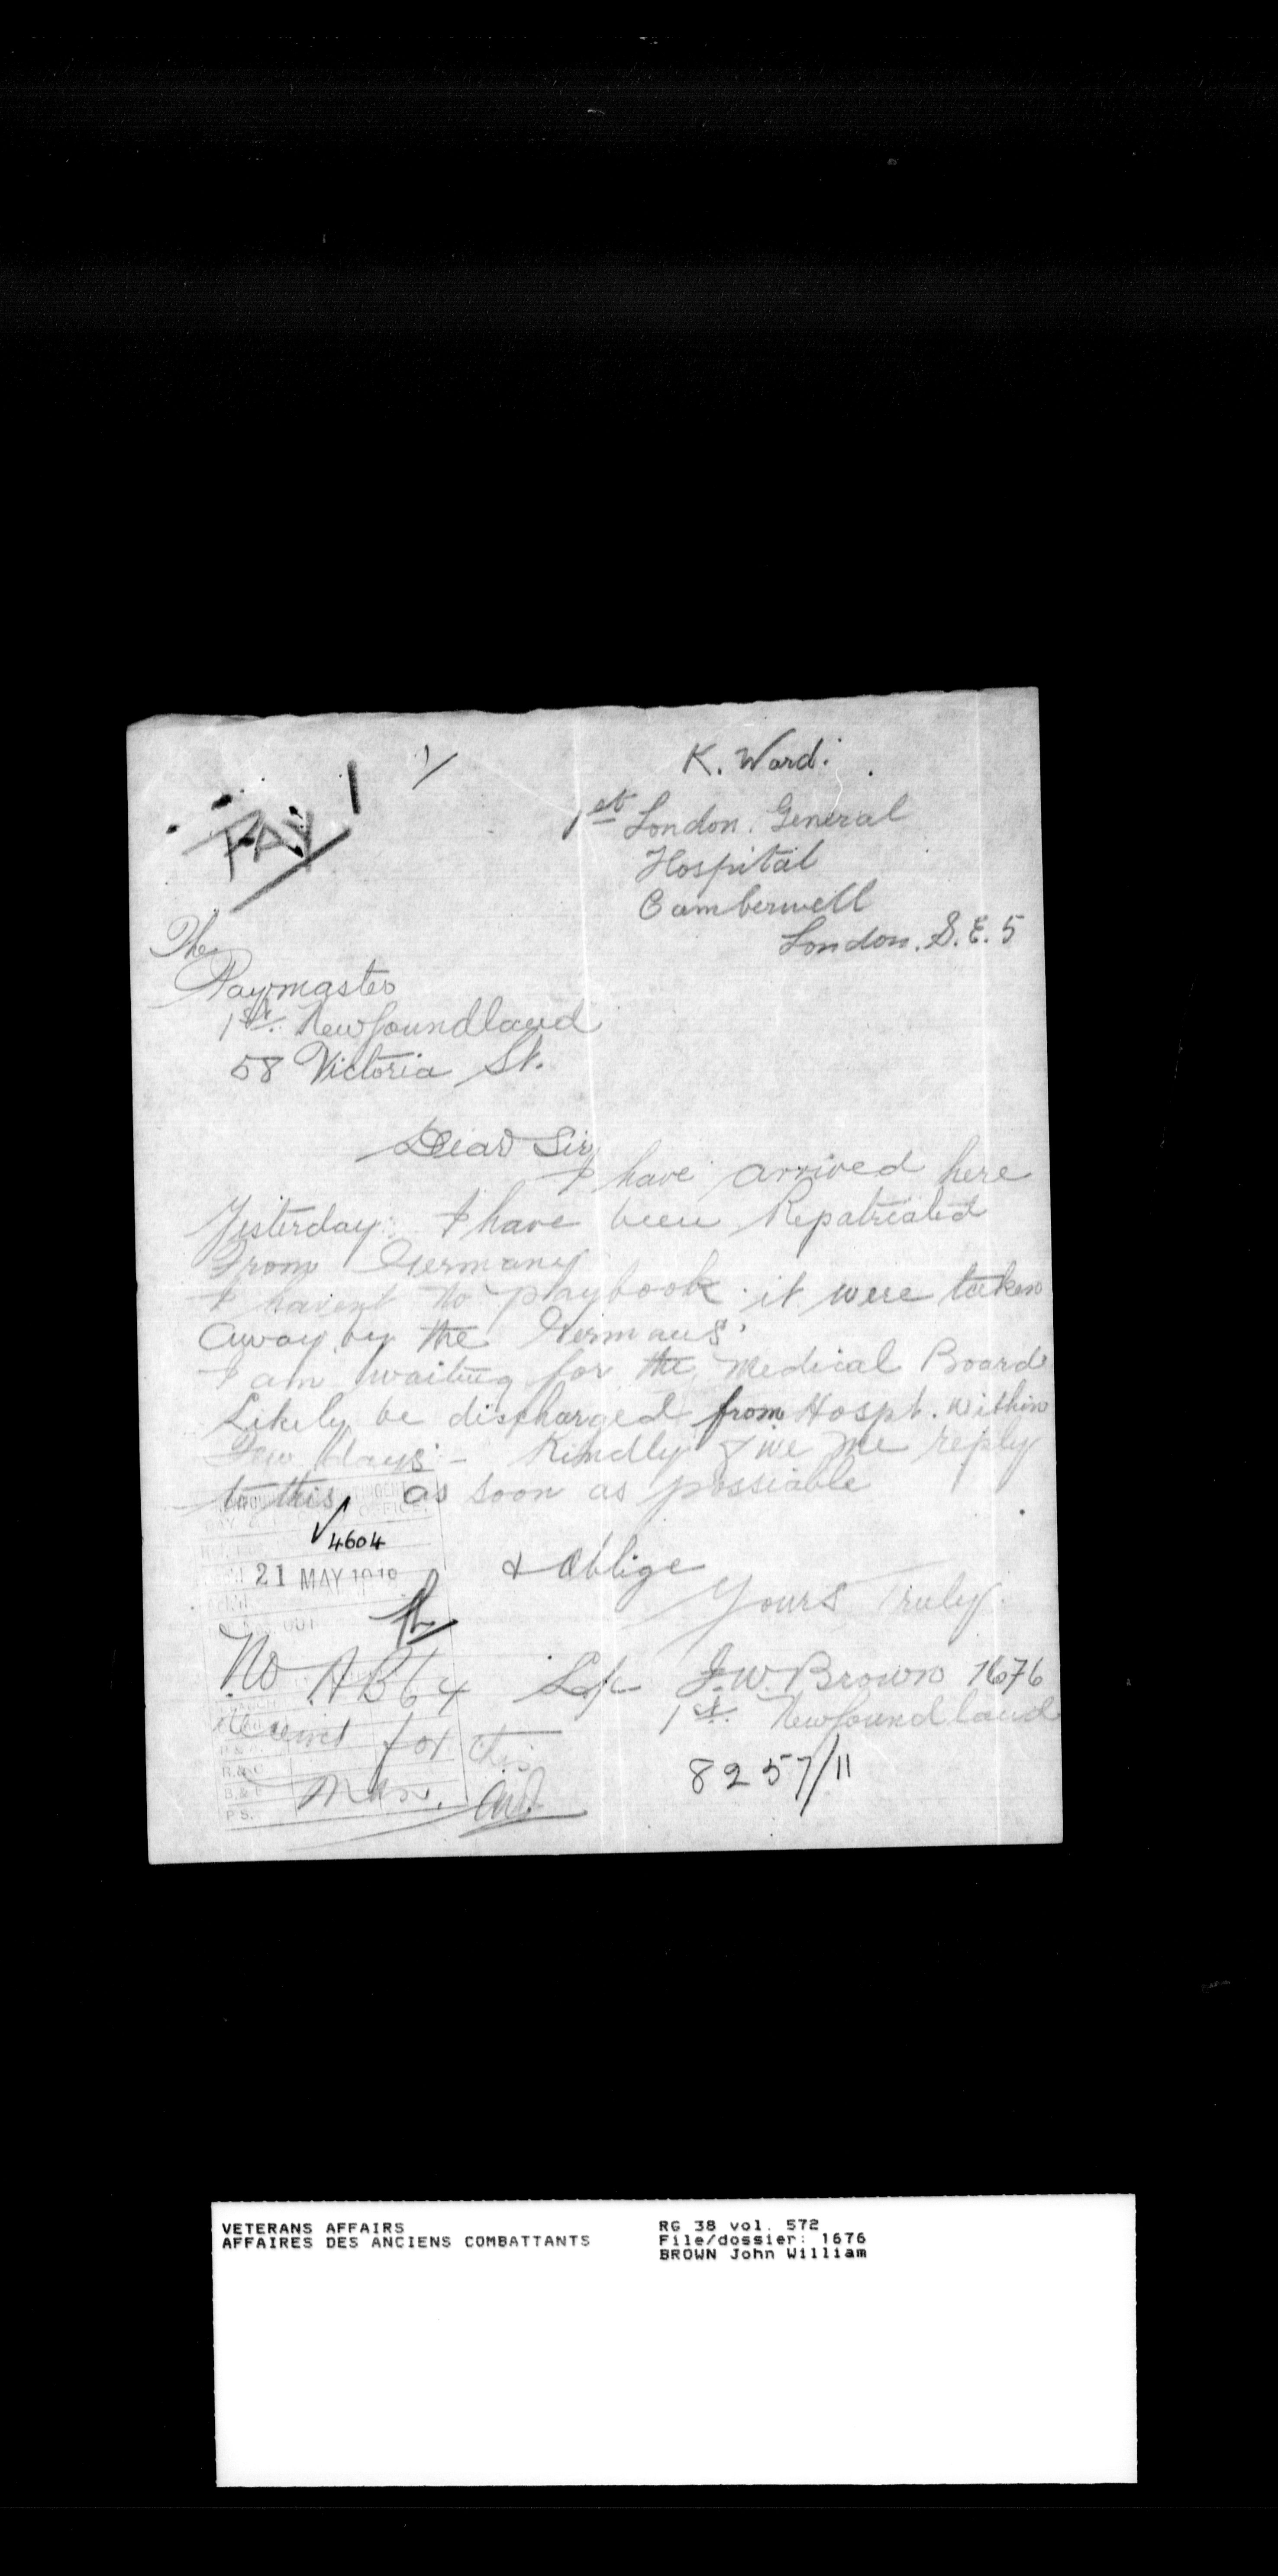 PAY
K. Ward.
1st London. General
Hospital
Camberwell
London. S.E. 5
The
Paymaster
1st. Newfoundland
58 Victoria St.
Dear Sir
I have arrived here
Yesterday. I have been Repatriated
From Germany
I havent no playbook. it were taken
Away by the Germans'
I am waiting for the Medical Board
Likely be discharged from Hospt. within
Few days:- Kindly give me reply
to this, as soon as possiable
4604
21 MAY 1918
& Oblige
Yours Truly.
No AB64
Received for this
Man.
L/c J.W. Brown 1676
1st. Newfoundland
8257/11
R.&C
B.&E
P.S.
VETERANS AFFAIRS
AFFAIRES DES ANCIENS COMBATTANTS
RG 38 vol. 572
File/dossier: 1676
BROWN John William